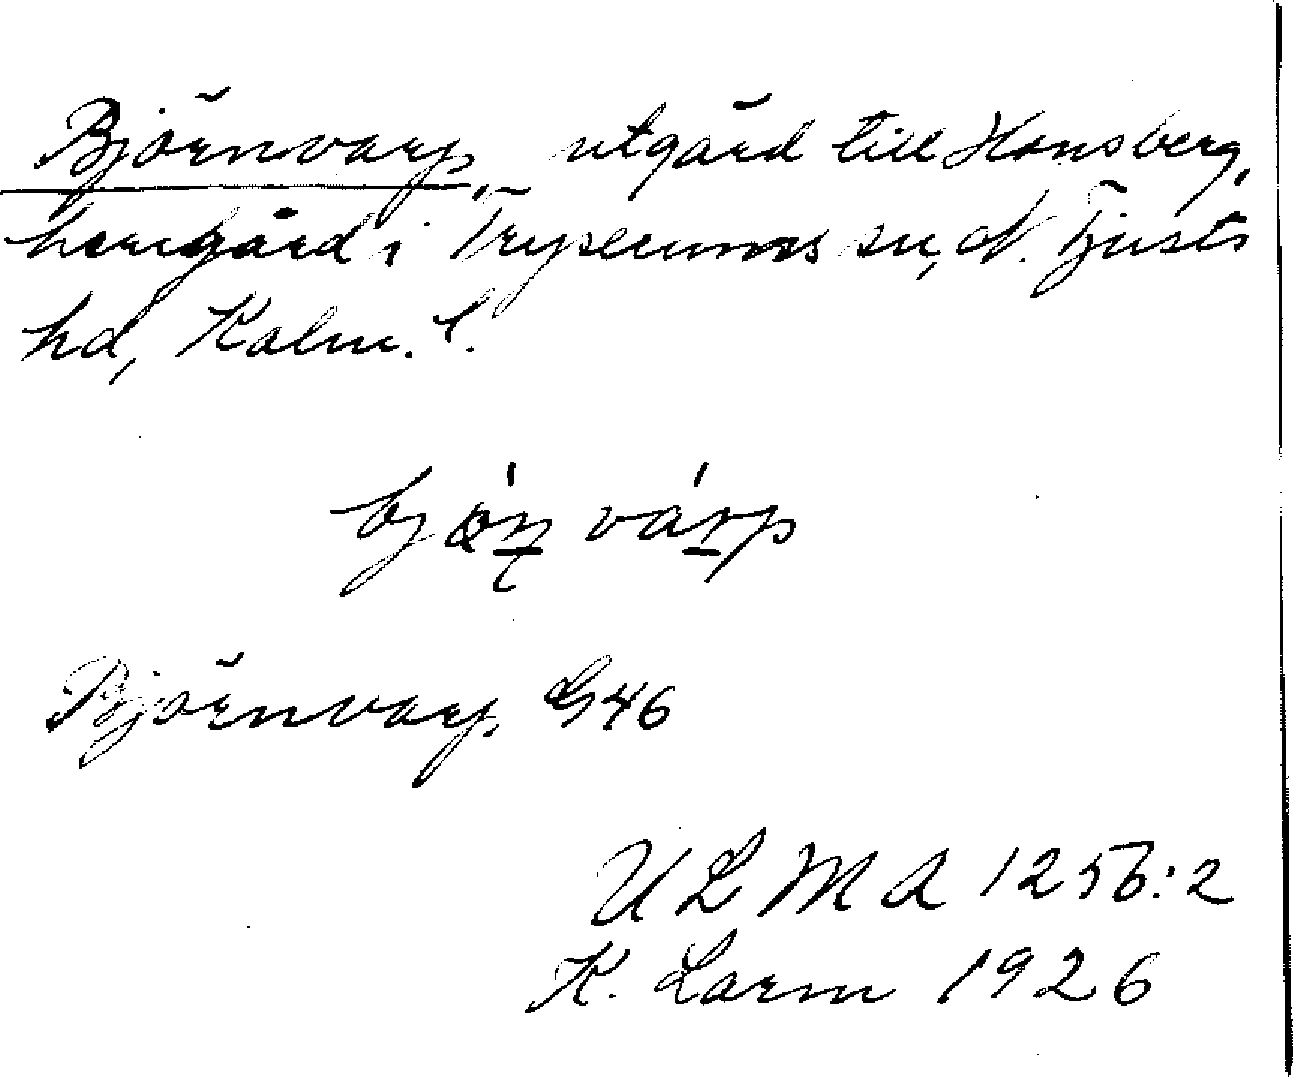 Björnvarp, utgård till Hansberg,
herrgård i Tryserums sn, N. Tjusts
hd, Kalm. l.
bjö́n várp
Björnvarp G 46
U L M A 1256:2
K. Larm 1926